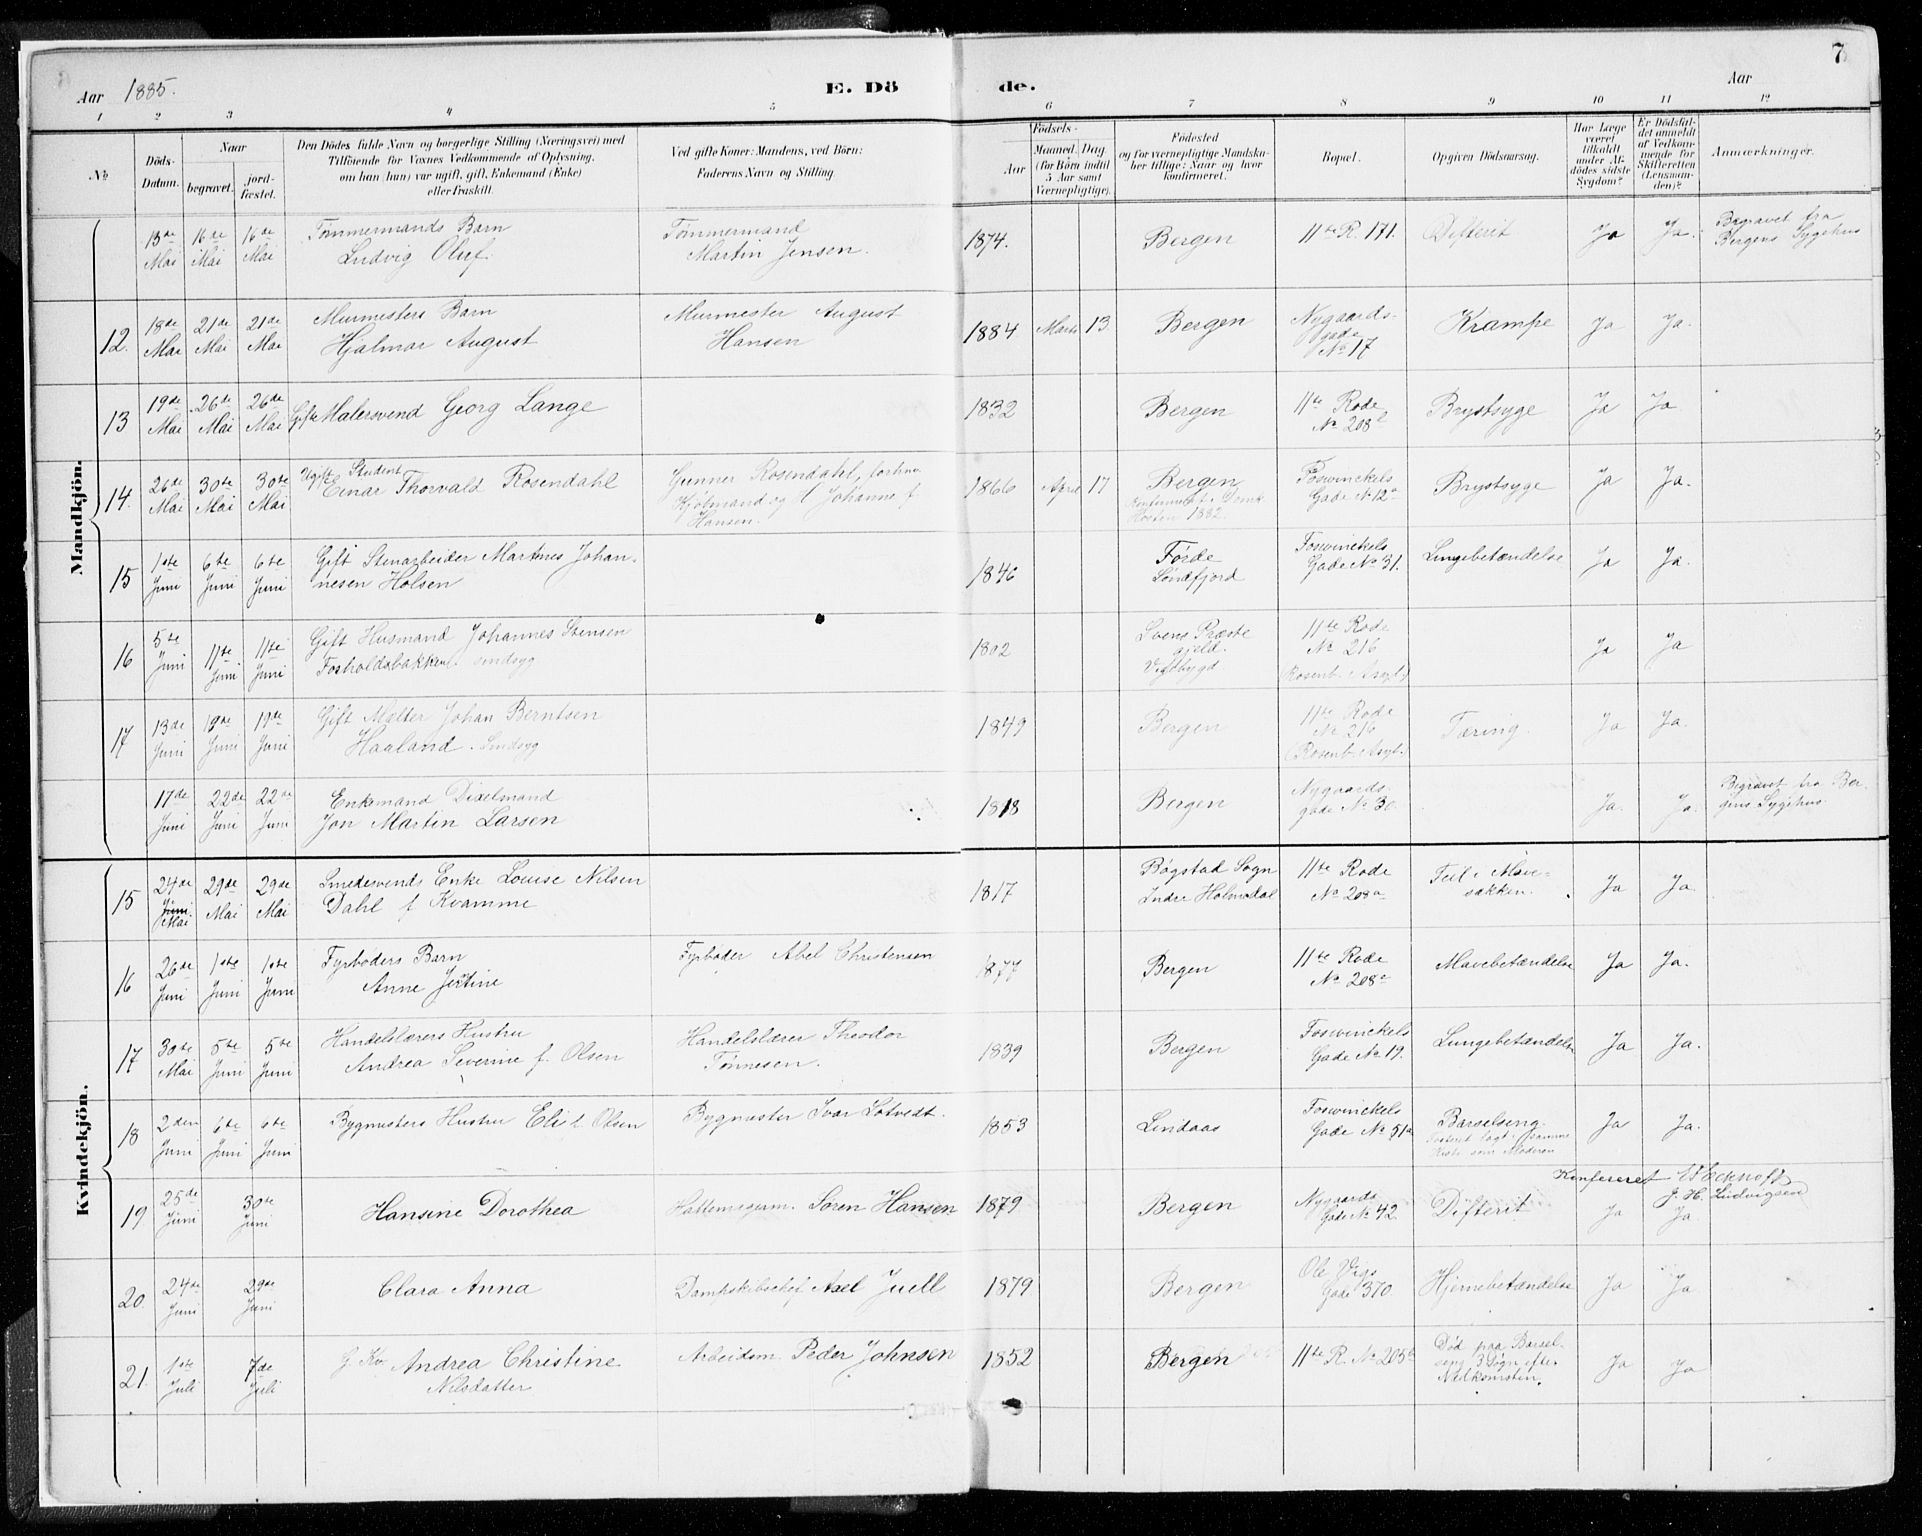 7
Aar 1885.
E. Dö
de.
Aar
1 2 3 4 5 6 7 8 9 10 11 12
No.
Döds-Datum.
Naar
begravet.
jord-fæstet.
Den Dödes fulde Navn og borgerlige Stilling (Næringsvei) med
Tilföiende for Voxnes Vedkommende af Oplysning,
om han (hun) var ugift, gift, Enkemand (Enke)
eller fraskilt.
Ved gifte Koner: Mandens, ved Börn:
Faderens Navn og Stilling.
Födsels-
Aar
Maaned. Dag
(for Börn indtil
5 Aar samt
Værnepligtige).
Födested
og for værnepligtige Mandskaber tillige: Naar og hvor
konfirmeret.
Bopæl.
Opgiven Dödsaarsag.
Har Læge
været
tilkaldt
under Afdödes sidste
Sygdom?
Er Dödsfaldet anmeldt
af Vedkommende for
Skifteretten
(Lensmanden)?
Anmærkninger.
Mandkjön.
13de Mai 16de Mai 16de Mai Tømmermands Barn Ludvig Oluf. Tømmermand Martin Jensen. 1874. Bergen 11te R. 171. Difterit Ja Ja. Begravet fra Bergens Sygehus
12. 18de Mai 21de Mai 21de Mai Murmesters Barn Hjalmar August Murmester August Hansen 1884 Marts 13. Bergen Nygaardsgade No 17 Krampe Ja Ja.
13 19de Mai 26de Mai 26de Mai Gift Malersvend Georg Lange 1832 Bergen 11te Rode No 208b Brystsyge Ja Ja
14. 26de Mai 30te Mai 30te Mai Ugift Student Einar Thorvald Rosendahl Gunner Rosendahl, forhnv. Kjøbmand og Johanne f. Hansen. 1866 April 17 Bergen Høsten 1882. Foswinckels Gade No 12a Brystsyge Ja Ja.
15 1ste Juni 6te Juni 6te Juni Gift Stenarbeider Martines Johannesen Holsen 1846 Førde Søndfjord Foswinckels Gade No 31. Lungebetændelse Ja Ja.
16 5te Juni 11te Juni 11te Juni Gift Husmand Johannes Stensen Fosholdsbakken. sindsyg 1802 Præstegjeld. 11te Rode No 216 (Rosenb. Asyl.) Ja Ja
17 13de Juni 19de Juni 19de Juni Gift Matter Johan Berntsen Haaland. Sindsyg 1849 Bergen 11te Rode No 216 (Rosenb. Asyl.) Tæring. Ja Ja.
17de Juni 22de Juni 22de Juni Enkemand Dixelmand Jon Martin Larsen 1818 Bergen Nygaardsgade No 30. Ja. Ja. Begravet fra Bergens Sygehus.
Kvindekjön.
15 24de Juni Mai 29de Mai 29de Mai Smedesvends Enke Louise Nilsen Dahl f Kvamme 1817 Bøgstad Sogn Indre Holmedal 11te Rode No 208a Feil i Mavesækken. Ja Ja.
16 26de Juni 1ste Juni 1ste Juni Fyrbøders Barn Anne Jextine Fyrbøder Abel Christensen 1877 Bergen 11te Rode No 208c Mavebetændelse Ja Ja.
17 30te Mai 5te Juni 5te Juni Handelslærers Hustru Andrea Severine f. Olsen Handelslærer Theodor Tønnesen. 1839 Bergen Foswinckels Gade No 19. Lungebetændelse Ja Ja.
18 2den Juni 6te Juni 6te Juni Bygmesters Hustru Elis f. Olsen Bygmester Ivar Løtvedt. 1853 Lindaas Foswinckels Gade No 51a Barselseng. Fosteret lagt i samme Kiste som Moderen Ja Ja.
Konfereret
J. H. Ludvigsen
19 25de Juni 30te Juni Hansine Dorothea Hattemagerm. Søren Hansen 1879 Bergen Nygaards Gade No 42 Difterit Ja Ja
20. 24de Juni 29de Juni Clara Anna Dampskibschef Axel Juell 1879 Bergen Ole Vigs Gade 370. Hjernebetændelse Ja Ja
21. 1ste Juli 7de Juli G. Kv. Andrea Christine Nilsdatter Arbeidsm. Peder Johnsen 1852 Bergen 11te R. No 205b Død paa Barselseng 3 Døgn efter Nedkomsten. Ja Ja